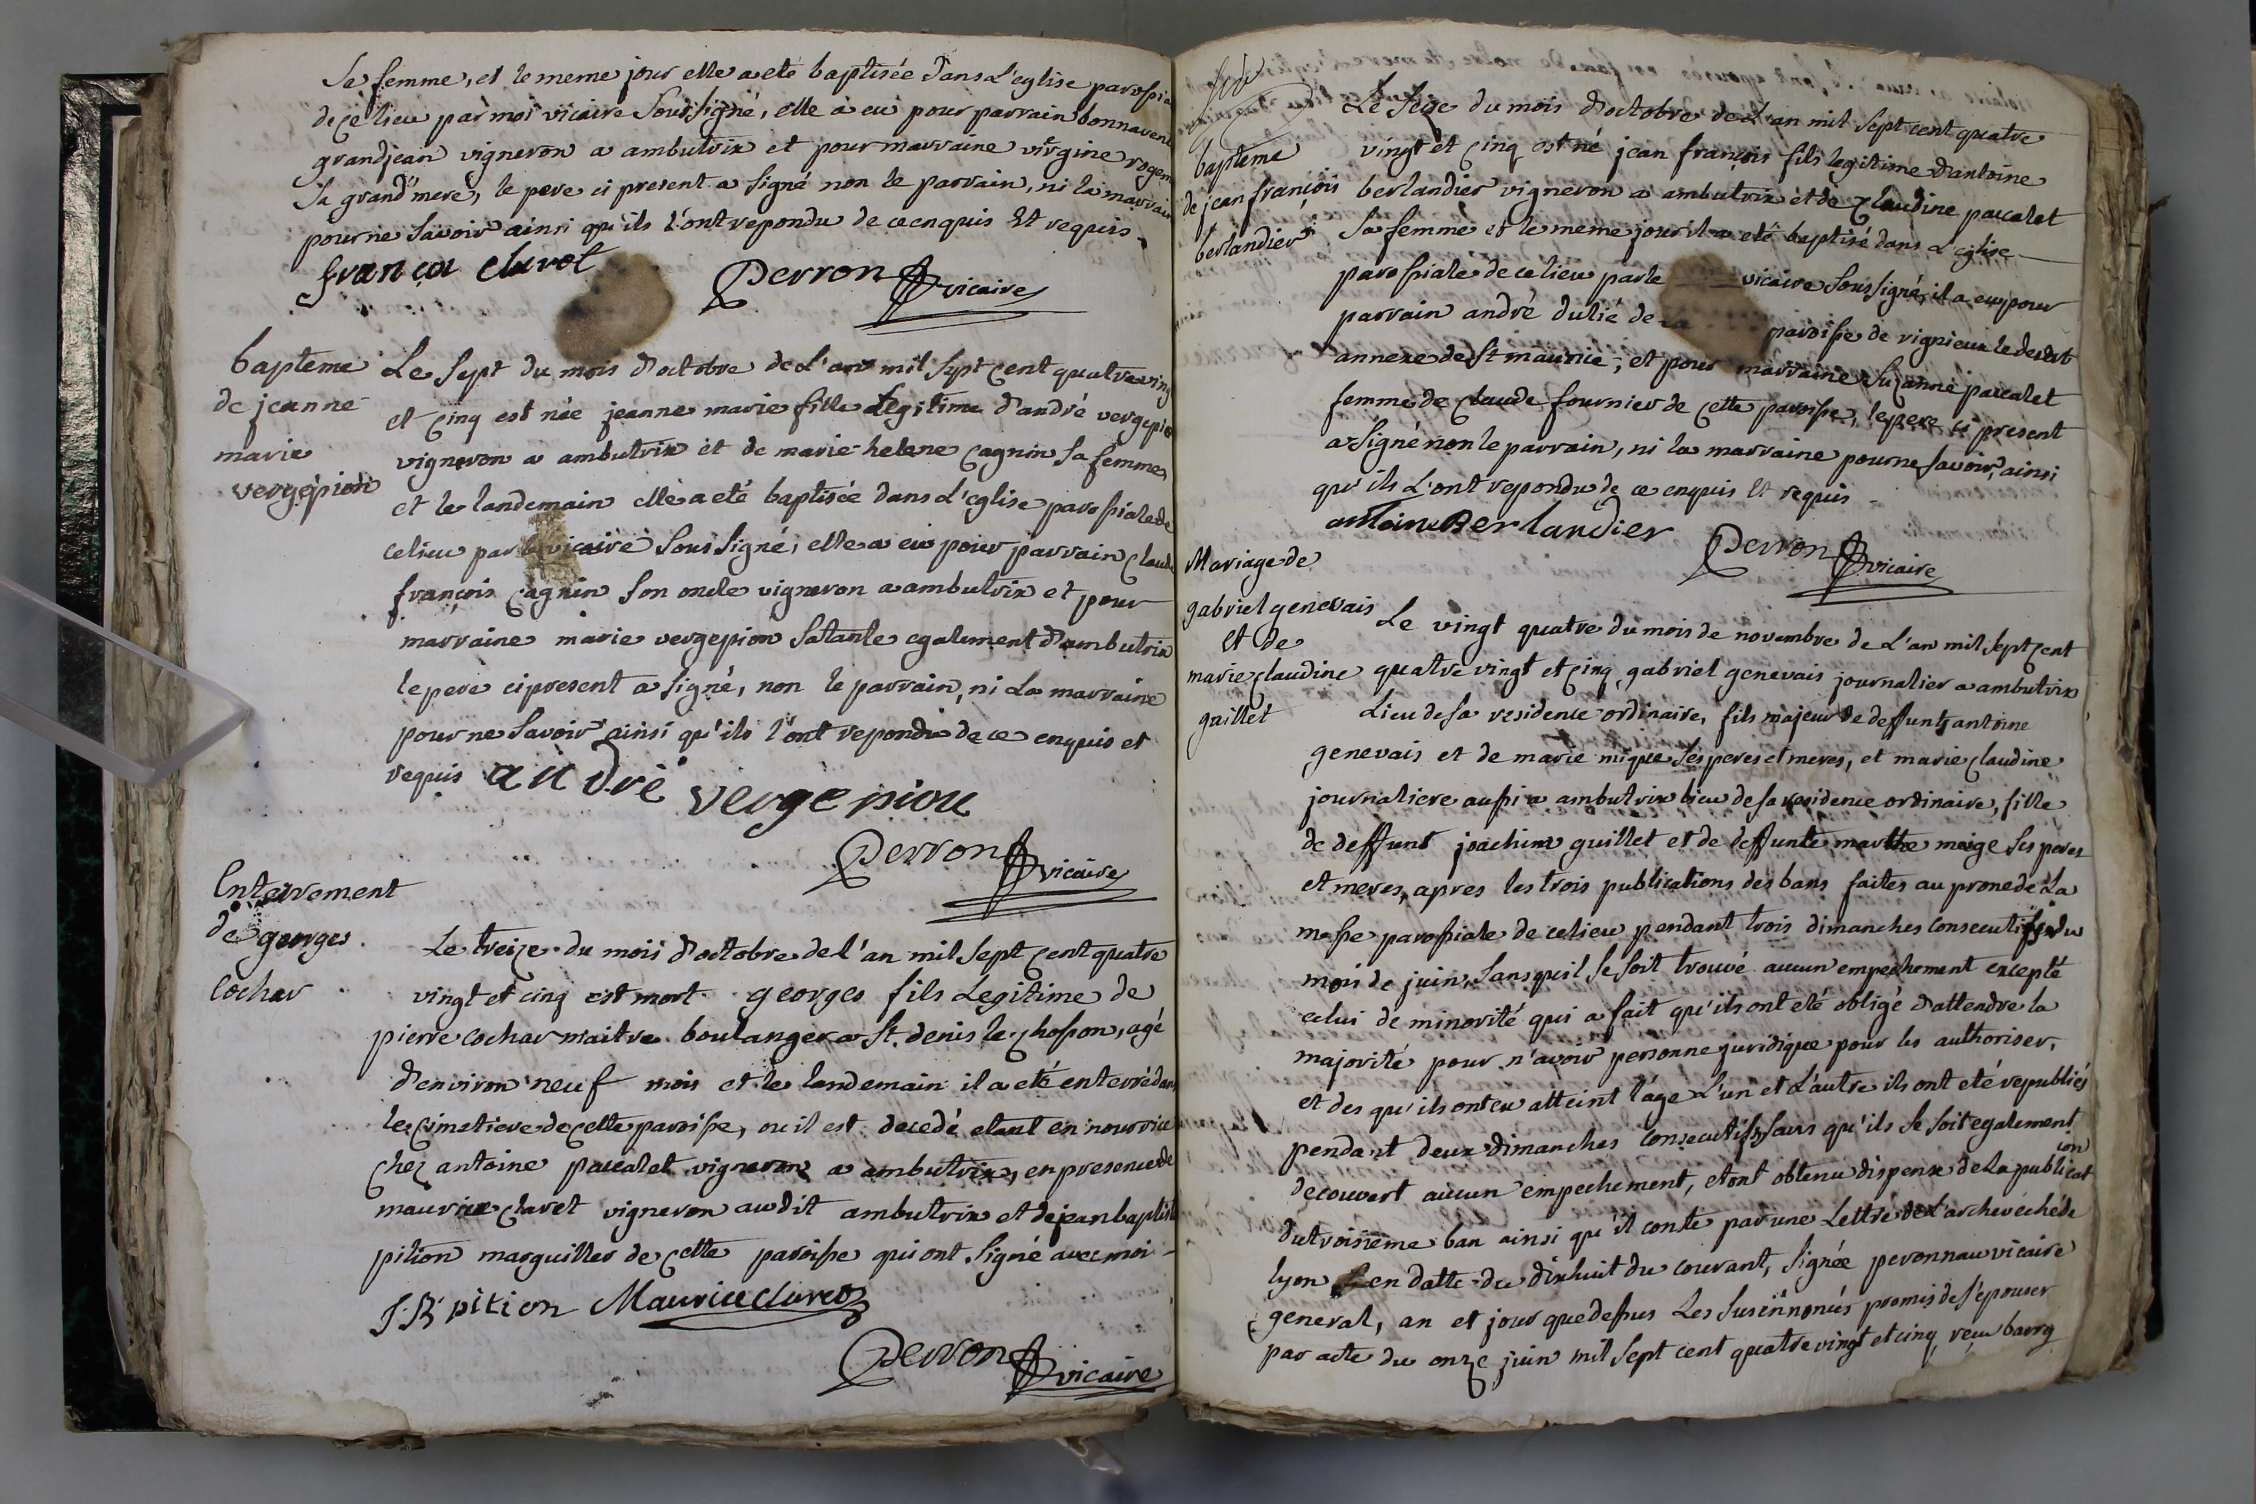 Sa femme, et le meme jour elle a eté baptisée dans L'eglise parossia
de ce lieu par moi vicaire Soussigné, elle a eu pour parrain bonnavent
grandjean vigneron a ambutrix et pour marraine virgine rogem
Sa grand'mere, le pere ci present a signé non le parrain, ni la marrain
pour ne savoir ainsi qu'ils l'ont repondu de ce enquis Et requis
françoi claret
Perron vicaire
bapteme
de jeanne
marie
vergepion
Le Sept du mois d'octobre de L'an mil Sept cent quatre ving
et cinq est née jeanne marie fille Legitime d'andré vergepion
vigneron a ambutrix et de marie-helene cagnin sa femme,
et le landemain elle a eté baptisée dans L'eglise parossiale de
ce lieu par le vicaire Soussigné, elle a eu pour parrain Claude
françois cagnin Son oncle vigneron a ambutrix et pour
marraine marie vergepion Sa tante egalement d'ambutrix
le pere ci present a signé, non le parrain, ni La marraine
pour ne Savoir ainsi qu'ils l'ont repondu de ce enquis et
requis andrè vergepion
Perron vicaire
Enterrement
de georges
cochar
Le treize du mois d'octobre de l'an mil Sept cent quatre
vingt et cinq est mort georges fils Legitime de
pierre cochar maitre boulanger a St. denis le chosson, agé
d'environ neuf mois et le landemain il a eté enterré dans
le cimetiere de cette paroisse, ou il est decedé etant en nourrice
chez antoine pascalet vigneron a ambutrix, en presence de
maurice claret vigneron audit ambutrix et de jean baptist
pition marguiller de cette paroisse qui ont signé avec moi
J. B. pition Maurice claret
Perron vicaire
bapteme
de jean françois
berlandier
Le Seze du mois d'octobre de L'an mil sept cent quatre
vingt et cinq est né jean françois fils legitime d'antoine
berlandier vigneron a ambutrix et de Claudine pascalet
Sa femme et le meme jour il a eté baptisé dans L'eglise
parossiale de ce lieu par le vicaire Soussigné, il a eu pour
parrain andré dulié de La paroisse de vignieux le desert
annexe de St maurice, et pour marraine Suzanne pascalet
femme de Claude fournier de cette paroisse, le pere ci present
a Signé non le parrain, ni la marraine pour ne savoir, ainsi
qu'ils L'ont repondu de ce enquis Et requis
antoine Berlandier
Perron vicaire
Mariage de
gabriel genevais
Et de
marie claudine
guillet
Le vingt quatre du mois de novembre de L'an mil sept cent
quatre vingt et cinq, gabriel genevais journalier a ambutrix
Lieu de sa residence ordinaire, fils majeur de deffunts antoine
genevais et de marie mique ses peres et meres, et marie claudine
journaliere aussi a ambutrix lieu de sa residence ordinaire, fille
de deffunt joachim guillet et de deffunte marthe meige ses peres
et meres, apres les trois publications des bans faites au prone de La
messe parossiale de ce lieu pendant trois dimanches consecutifs du
mois de juin, sans qu'il se soit trouvé aucun empechement excepté
celui de minorité qui a fait qu'ils ont eté obligé d'attendre la
majorité pour n'avoir personne juridique pour les authoriser,
et des qu'ils ont eu atteint l'âge L'un et L'autre ils ont eté republiés
pendant deux dimanches consecutifs sans qu'ils se soit egalement
decouvert aucun empechement, et ont obtenu dispense de La publication
du troisième ban ainsi qu'il conte par une Lettre de L'archevéché de
lyon en datte du dixhuit du courant, signée peronnau vicaire
general, an et jour que dessus Les susennoncés promis de s'epouser
par acte du onze juin mil sept cent quatre vingt et cinq, reçu barrq